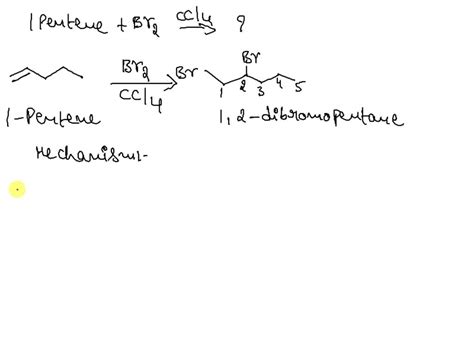 1 Pentene + Br2 CCl4 ?
Br2
CCl4
Br
Br
1 2 3 4 5
1-Pentene
1,2-dibromopentane
Mechanism:-